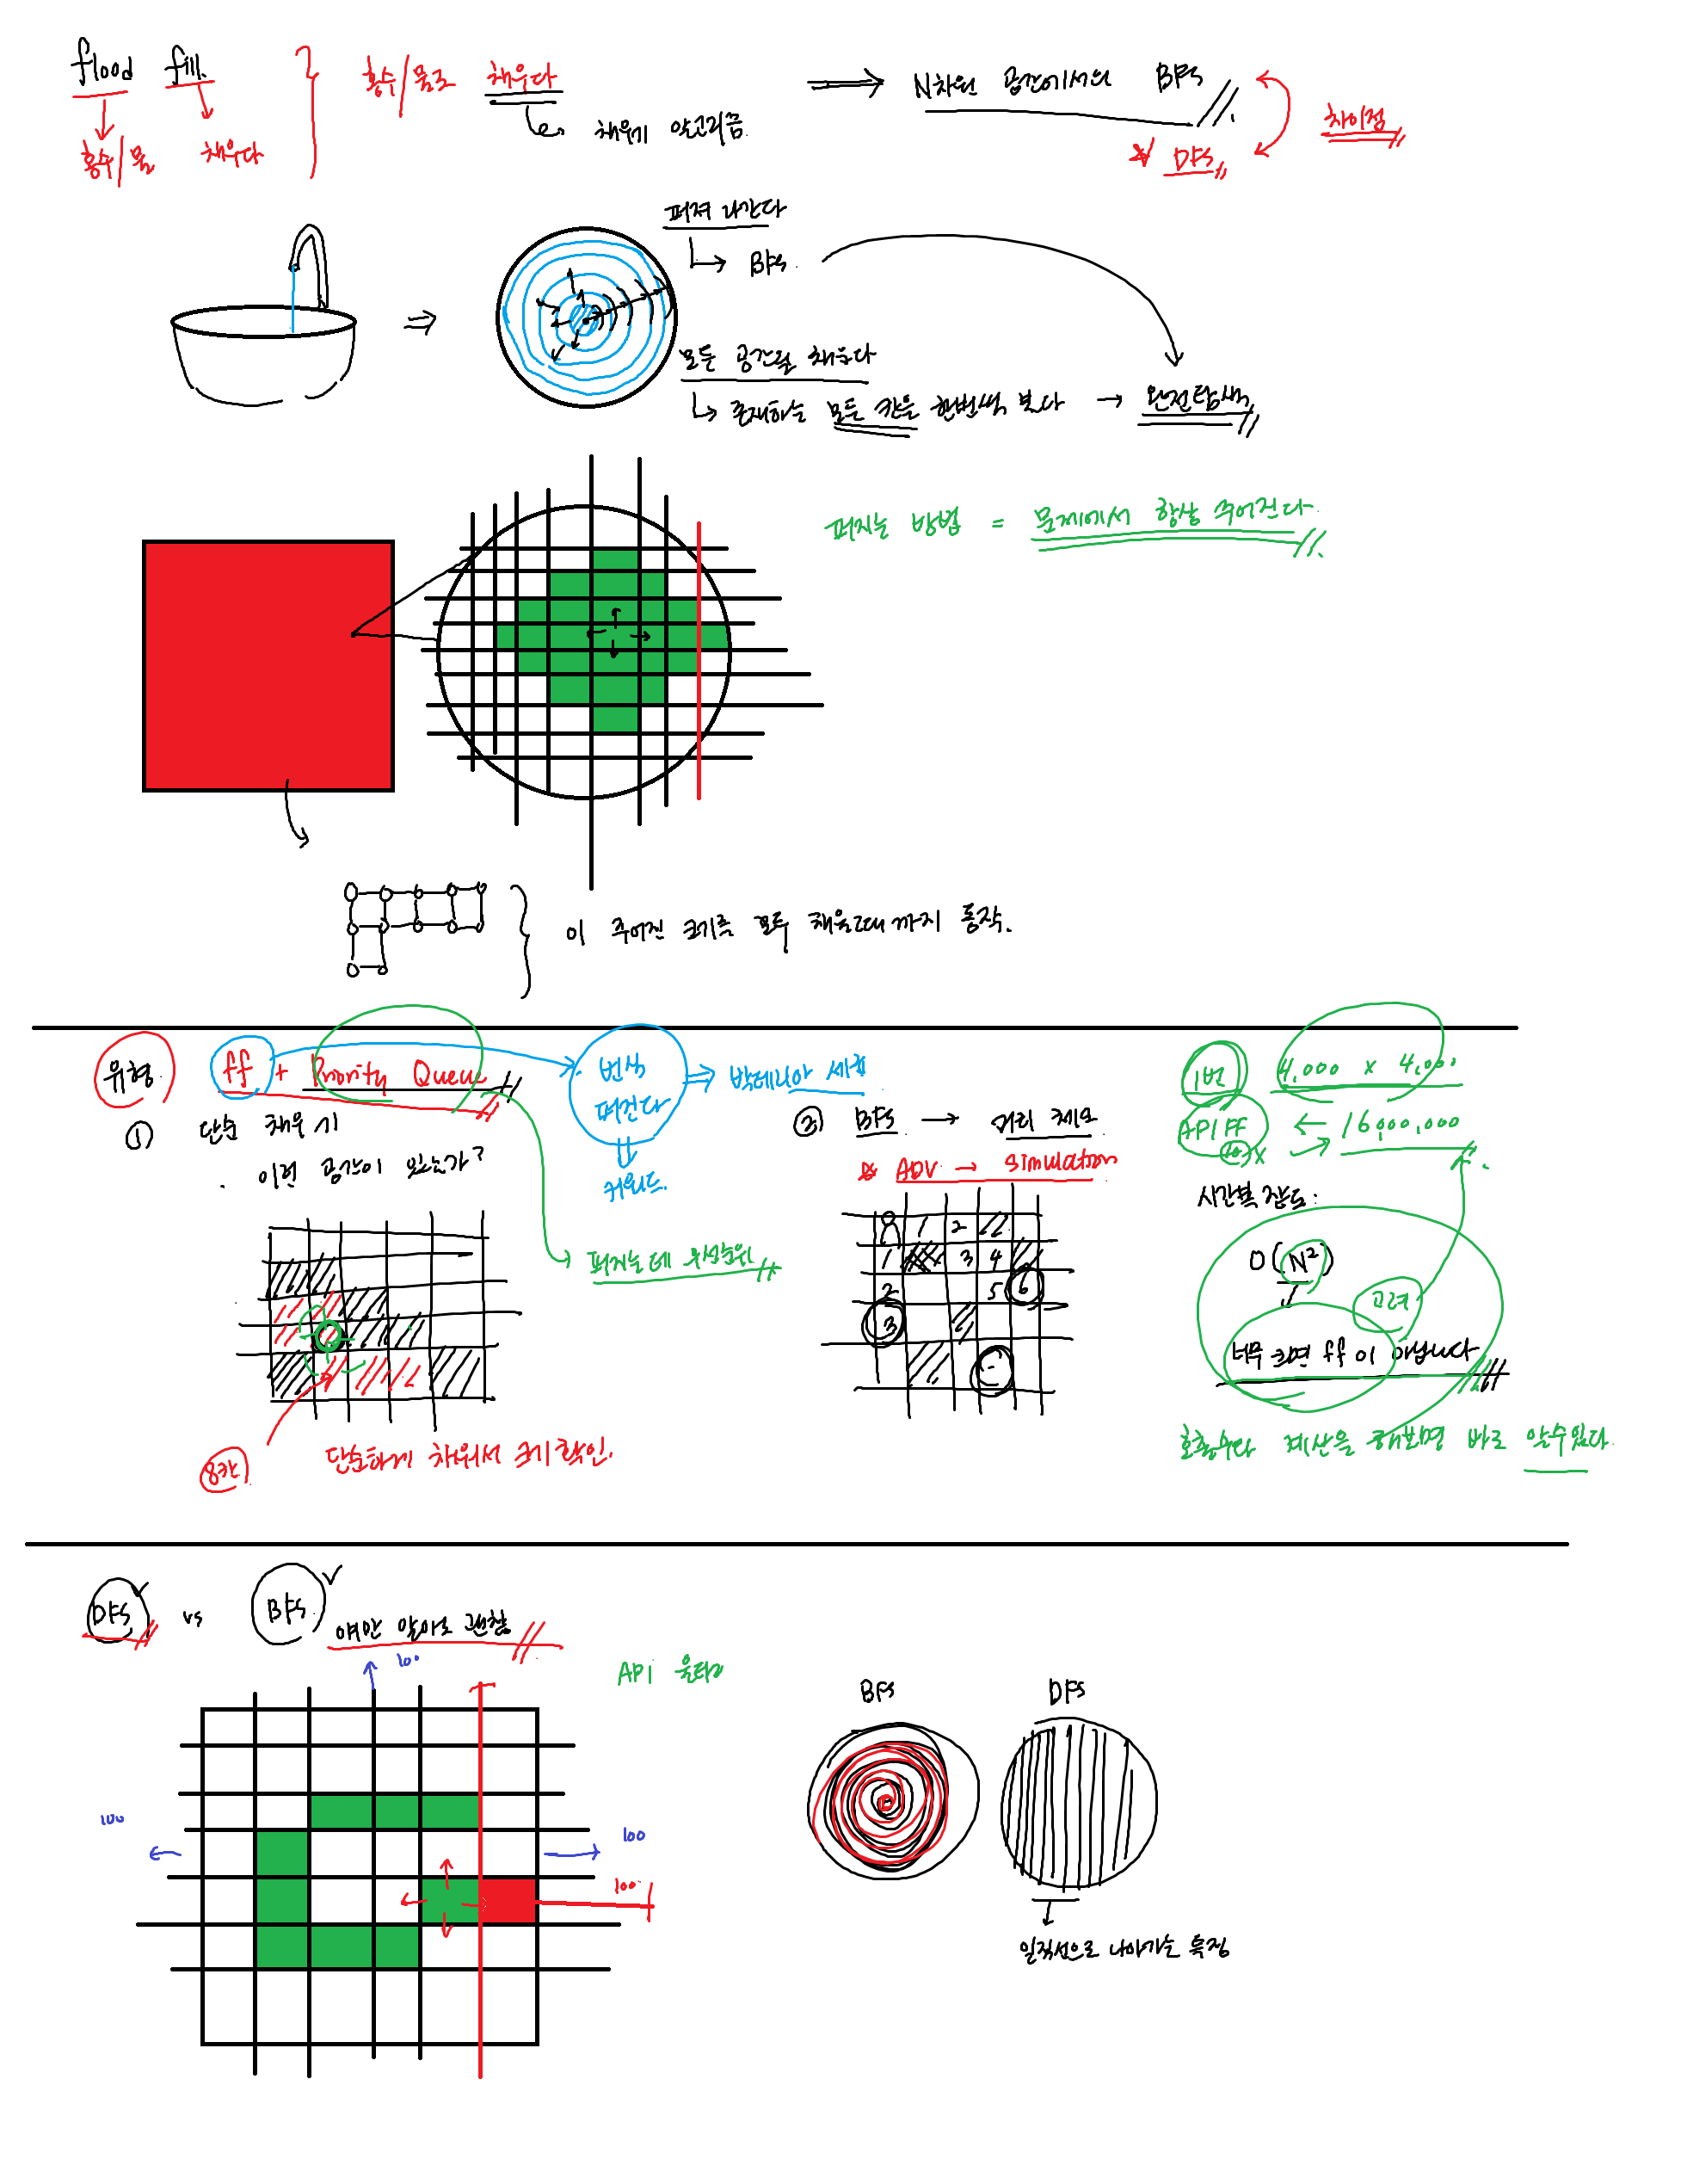 flood fill.
홍수/물 채우다
홍수/물로 채우다
채우기 알고리즘
N차원 공간에서의 BFS
DFS
차이점
퍼져 나간다
BFS.
모든 공간을 채운다
존재하는 모든 칸을 한번씩 본다 → 완전탐색
퍼지는 방법 = 문제에서 항상 주어진다.
이 주어진 크기를 모두 채울때까지 동작.
유형
ff + Priority Queue
번식
퍼진다
박테리아 세포
키워드.
① 단순 채우기
이런 공간이 있는가?
퍼지는데 우선순위
8칸
단순하게 채워서 크기 확인.
② BFS → 거리 체크
ADV → Simulation
1 2
1 3 4
2 5 6
3
1번 4,000 x 4,000
API FF ← 16,000,000
시간복잡도:
O(N²)
고려
너무 크면 ff이 아닙니다
계산을 해보면 바로 알수있다.
DFS vs BFS
얘만 알아도 괜찮
API 울타리
100
100
100
100
BFS
DFS
일직선으로 나아가는 특징